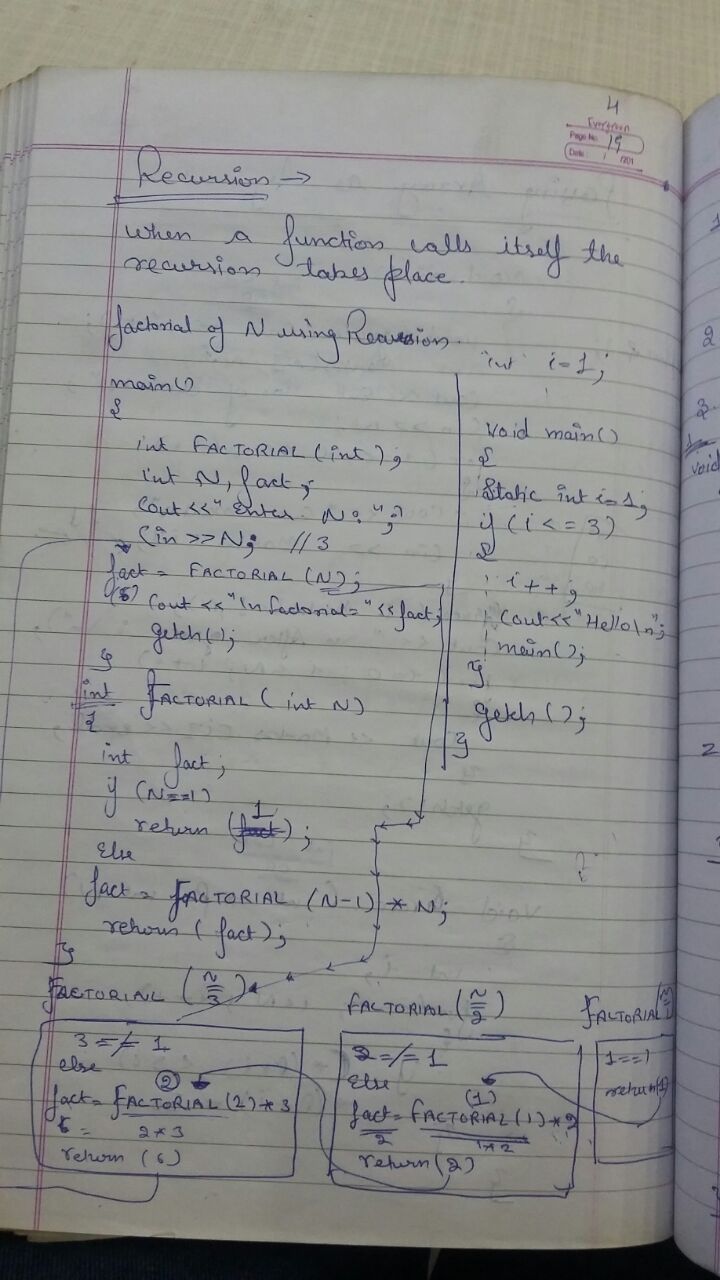 4
Evergreen
Page No. 19
Date: / /201
Recursion →
When a function calls itself the
recursion takes place.
factorial of N using Recursion.
main()
{
int FACTORIAL (int);
int N, fact;
Cout<<"Enter No: ";
Cin >>N; //3
fact = FACTORIAL (N);
(6) Cout <<"\n factorial="<<fact;
getch();
}
int FACTORIAL (int N)
{
int fact;
if (N==1)
return (1);
Else
fact = FACTORIAL (N-1) * N;
return (fact);
}
int i=1;
Void main()
{
Static int i=1;
if (i<=3)
{
i++;
Cout<<"Hello\n";
main();
}
getch();
}
FACTORIAL (N=3)
3 =≠ 1
else
②
fact = FACTORIAL (2) * 3
6 = 2*3
return (6)
FACTORIAL (N=2)
2 =≠ 1
Else
(1)
fact = FACTORIAL (1) * 2
2 1*2
return (2)
FACTORIAL
1==1
return(1)
2
3
void
2